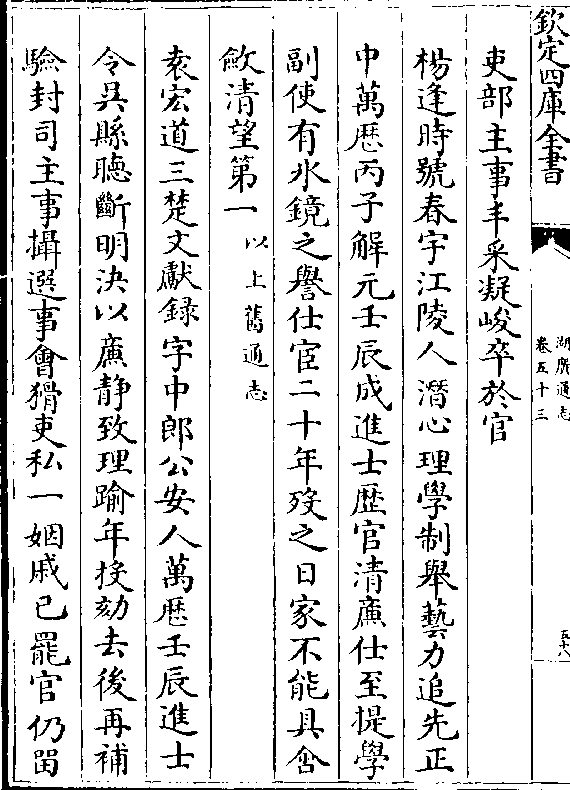 欽定四庫全書
湖廣通志
卷五十三
五十八
吏部主事丰采凝峻卒於官
楊逢時號春宇江陵人潛心理學制舉藝力追先正
中萬厯丙子解元壬辰成進士歴官清廉仕至提學
副使有氷鏡之譽仕宦二十年歿之日家不能具含
斂清望第一以上舊通志
袁宏道三楚文獻録字中郎公安人萬厯壬辰進士
令吳縣聽斷明決以廉静致理踰年投劾去後再補
驗封司主事攝選事㑹猾吏私一姻戚已罷官仍留